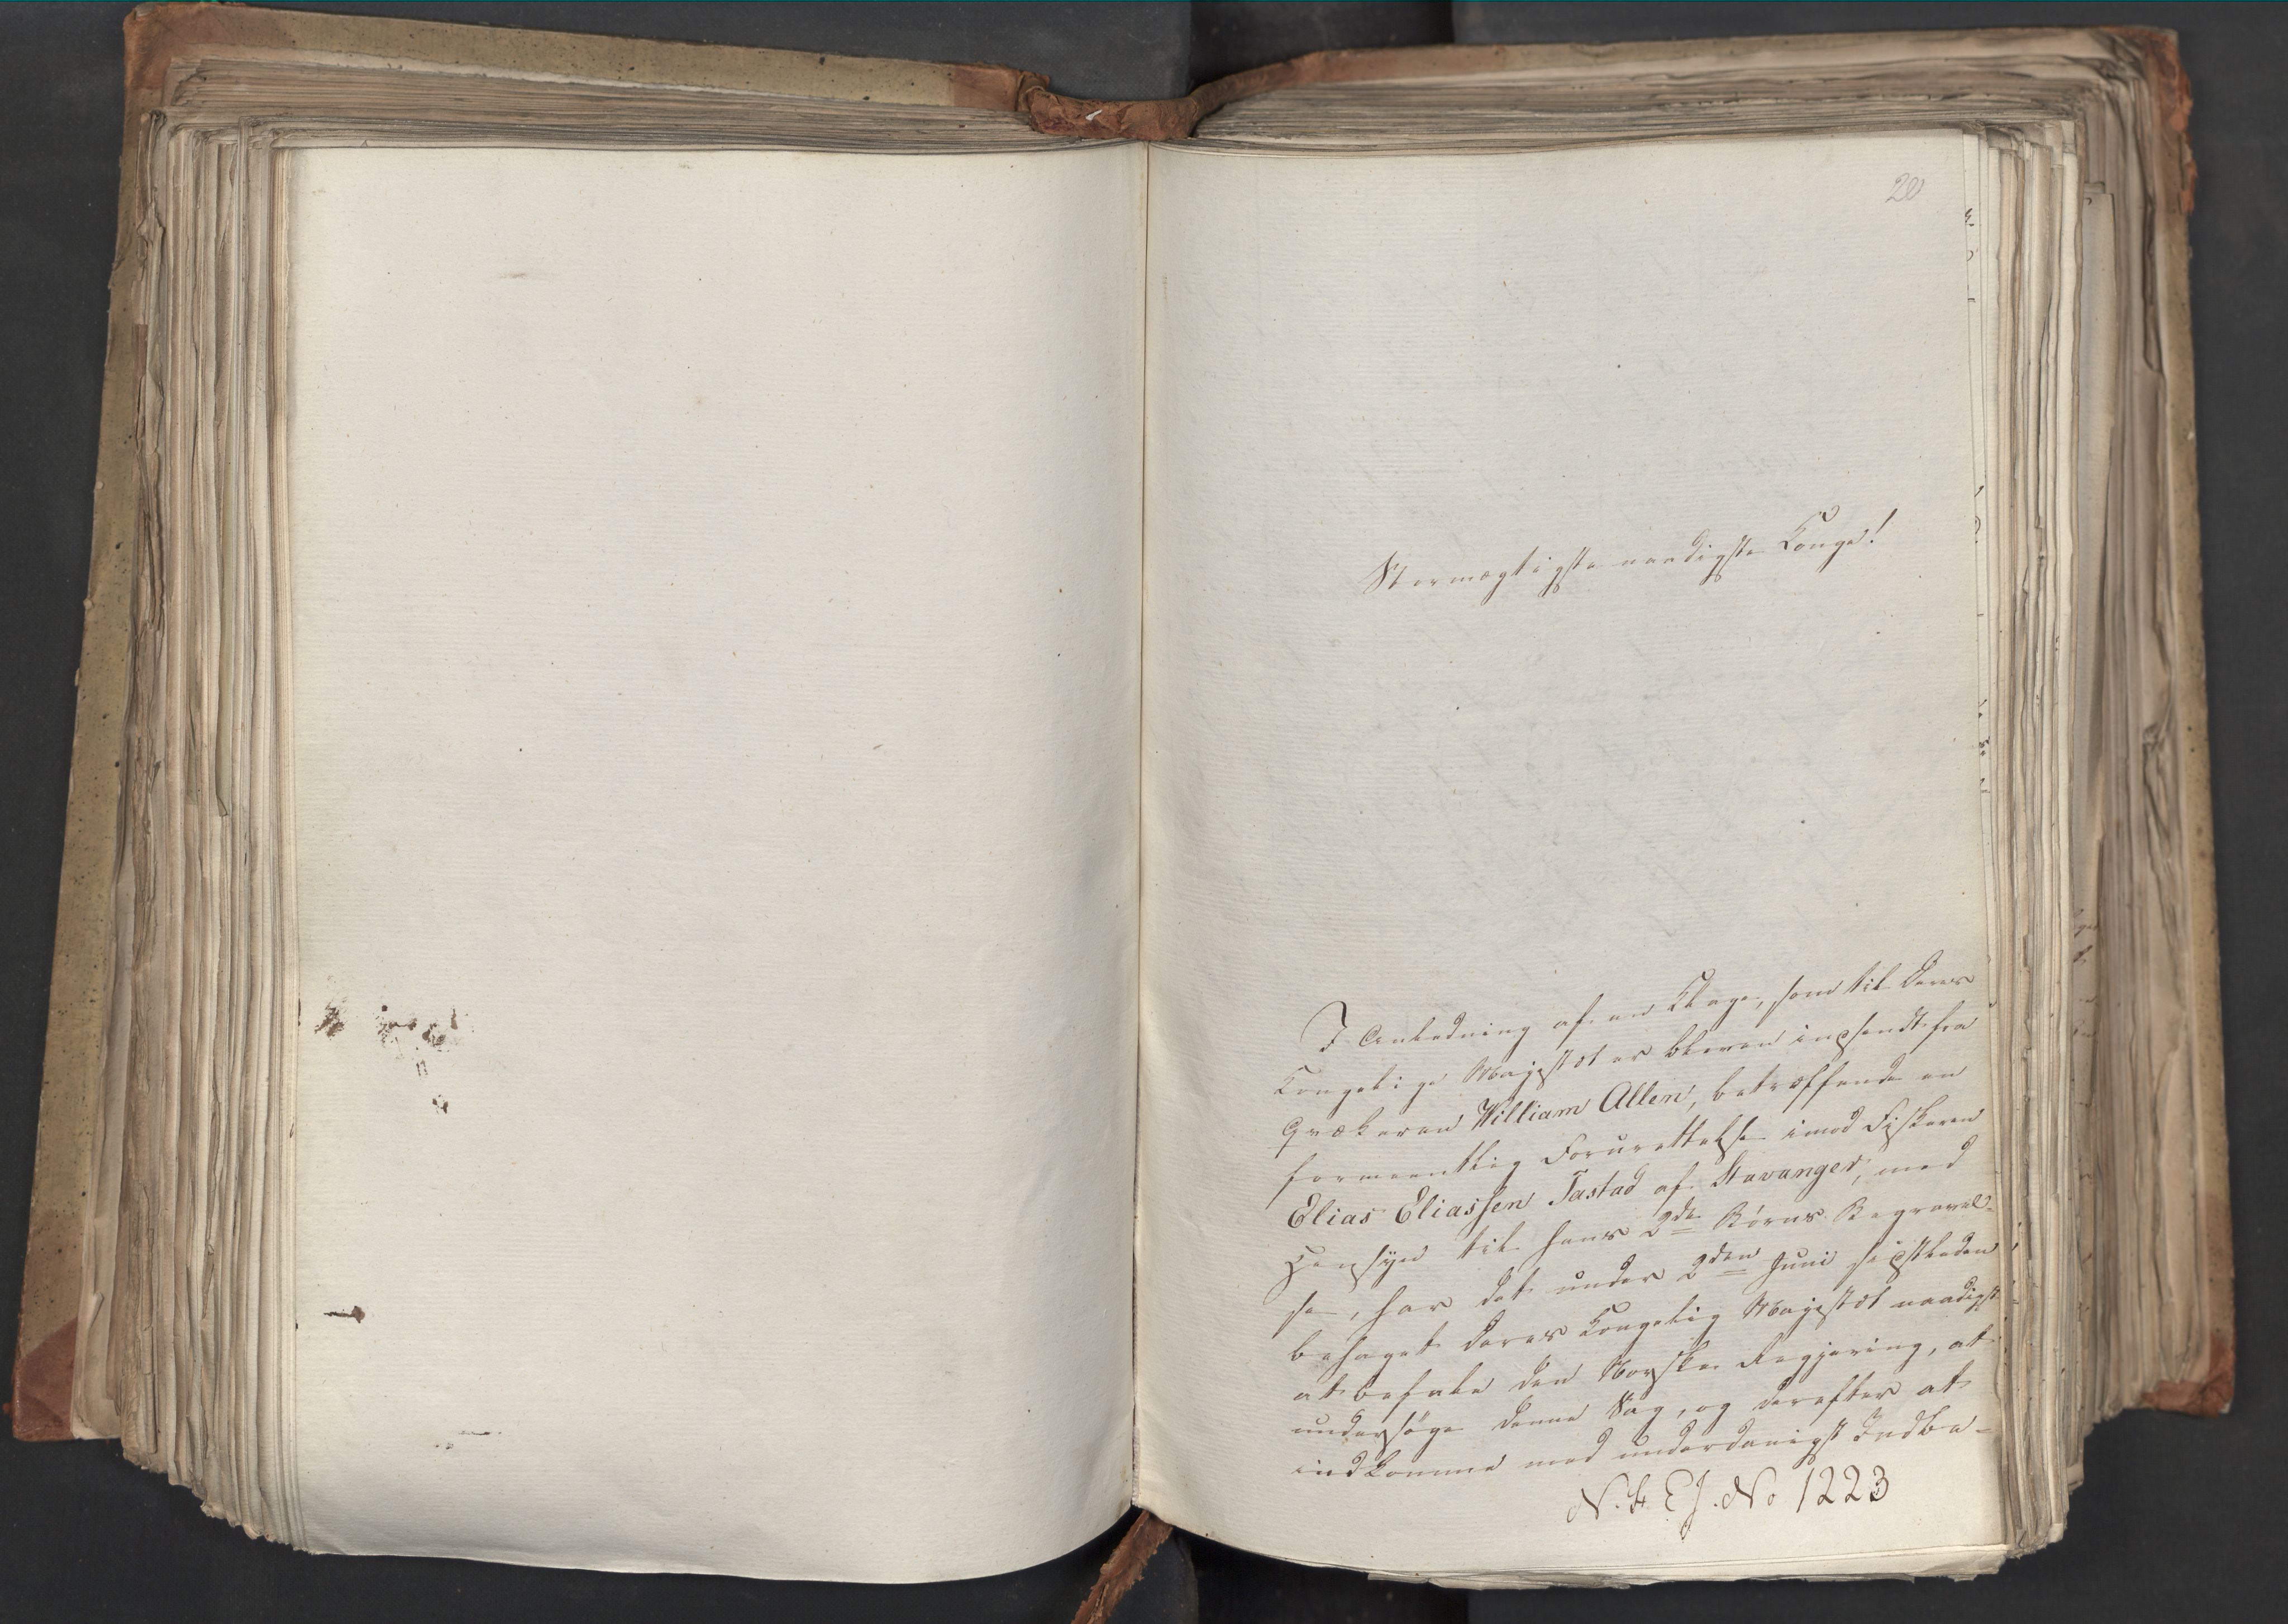 20
Stormægtigste naadigste Konge!
I Anledning af en Klage, som til Deres
Kongelige Majestæt er bleven indsendt fra
Qvækeren William Allen, betræffende en
formeentlig Forurettelse imod Fiskeren
Elias Eliassen Tastad af Stavanger, med
Hensyn til hans 2de Börns Begravel-
se, har det under 2den Juni sidstleden
behaget Deres Kongelig Majestæt naadigst
at befale den Norske Regjering, at
undersöge denne Sag, og derefter at
indkomme med underdanigst Indbe-
N. St. E J. No 1223